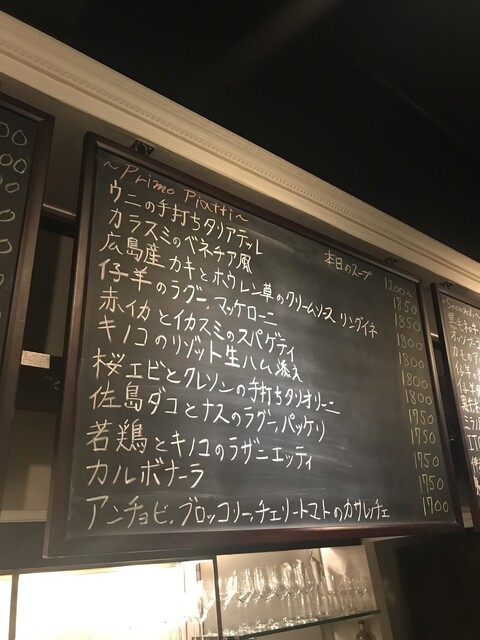 ~Primo Piatti~
本日のスープ 1200
ウニの手打ちタリアテッレ 1850
カラスミのベネチア風 1850
広島産 カキとホウレン草のクリームソース リングイネ 1800
仔羊のラグー、マッケローニ 1800
赤イカとイカスミのスパゲティ 1800
キノコのリゾット 生ハム添え 1800
桜エビとクレソンの手打ちタリオリーニ 1750
佐島ダコとナスのラグー、パッケリ 1750
若鶏とキノコのラザニエッティ 1750
カルボナーラ 1750
アンチョビ、ブロッコリー、チェリートマトのカサレッチェ 1700